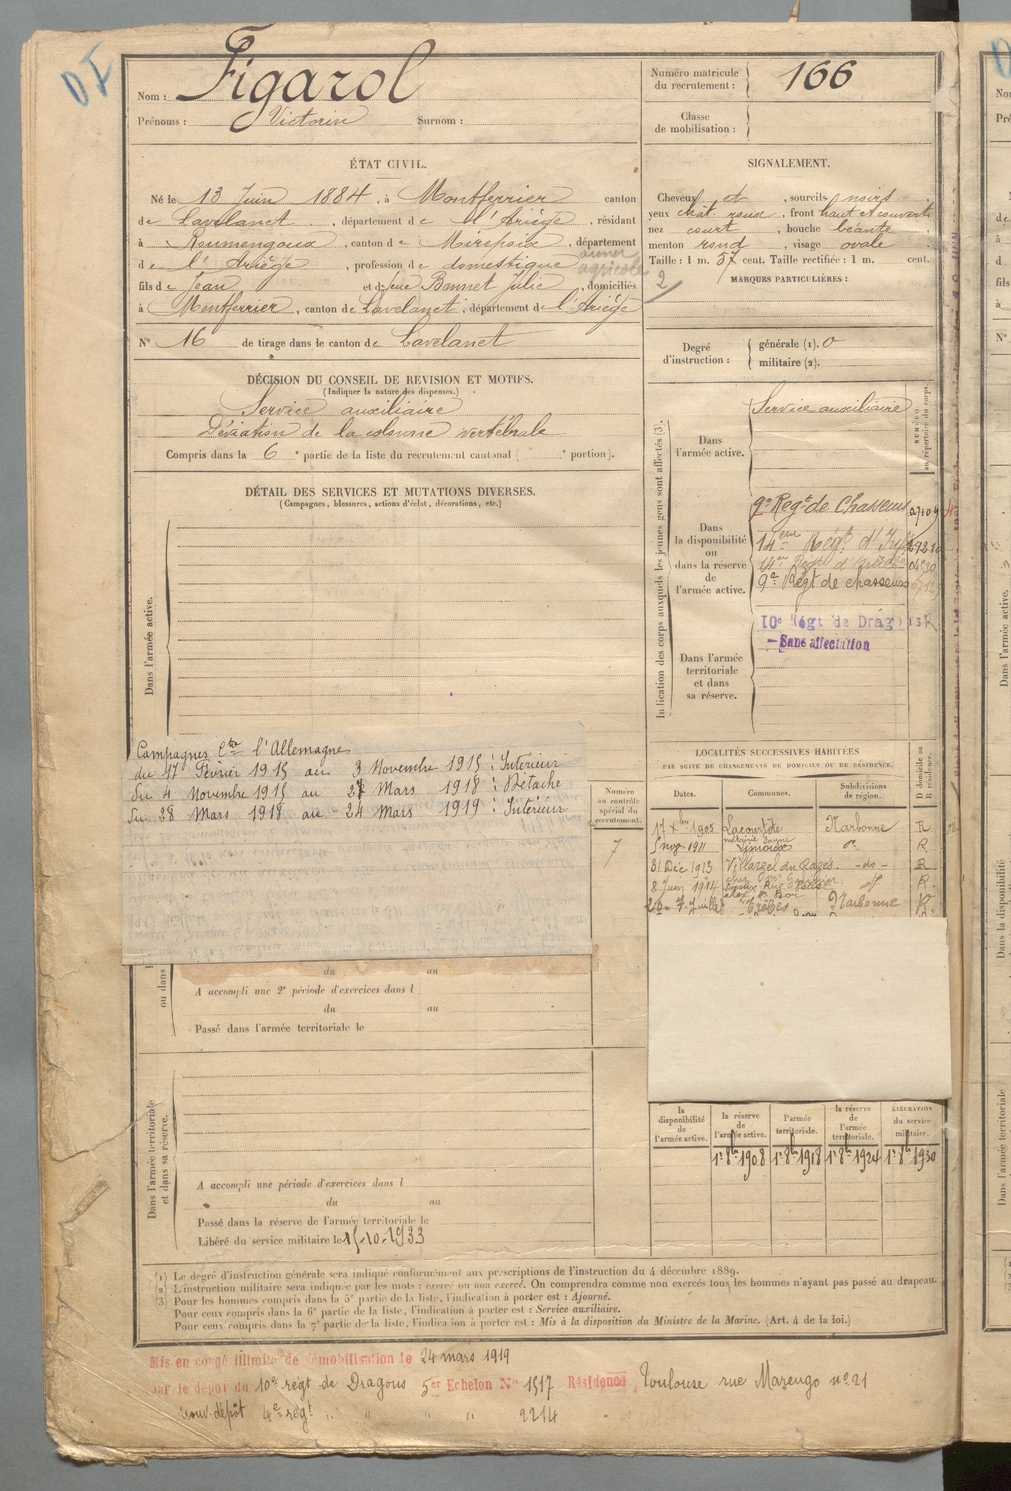 Nom : Figarol
Prénoms : Victorin Surnom :
Numéro matricule du recrutement : 166
Classe de mobilisation :
ÉTAT CIVIL.
Né le 13 Juin 1884, à Montferrier canton
de Lavelanet, département de l'Ariège, résidant
à Roumengoux, canton de Mirepoix, département
de l'Ariège, profession de domestique agricole
fils de Jean et de feue Bonnet Julie, domiciliés
à Montferrier, canton de Lavelanet, département de l'Ariège
N° 16 de tirage dans le canton de Lavelanet
SIGNALEMENT.
Cheveux et, sourcils noirs
yeux chât. roux, front haut et couvert
nez court, bouche béante
menton rond, visage ovale
Taille : 1 m. 57 cent. Taille rectifiée : 1 m. cent.
MARQUES PARTICULIÈRES :
2
Degré d'instruction : générale (1). 0
militaire (2).
DÉCISION DU CONSEIL DE REVISION ET MOTIFS.
(Indiquer la nature des dispenses.)
Service auxiliaire
Déviation de la colonne vertébrale
Compris dans la 6e partie de la liste du recrutement cantonal ( e portion).
DÉTAIL DES SERVICES ET MUTATIONS DIVERSES.
(Campagnes, blessures, actions d'éclat, décorations, etc.)
Dans l'armée active.
Indication des corps auxquels les jeunes gens sont affectés (3).
NUMÉRO au répertoire du corps.
Dans l'armée active.
Service auxiliaire
Dans la disponibilité ou dans la réserve de l'armée active.
9e Regt de Chasseurs
14ème Régt d'
9e Régt de chasseurs
Dans l'armée territoriale et dans sa réserve.
10e Régt de Dragons R
Sans affectation
Campagnes Ctre l'Allemagne
du 17 Février 1915 au 3 Novembre 1915 : Intérieur
du 4 Novembre 1915 au 27 Mars 1918 : Détaché
du 28 Mars 1918 au 24 Mars 1919 : Intérieur
Numéro au contrôle spécial du recrutement.
7
LOCALITÉS SUCCESSIVES HABITÉES
PAR SUITE DE CHANGEMENTS DE DOMICILE OU DE RÉSIDENCE.
Dates. Communes. Subdivisions de région. D domicile ou R résidence.
17 Xbre 1905 Lacourtète Narbonne R
5 nov. 1911 Limoux do R
31 Déc 1913 Villarzel du Razès - do - R
8 Juin 1914 R.
7 Juillet Trèbes Narbonne R.
ou dans
du au
A accompli une 2e période d'exercices dans l
du au
Passé dans l'armée territoriale le
Dans l'armée territoriale et dans sa réserve.
A accompli une période d'exercices dans l
du au
Passé dans la réserve de l'armée territoriale le
Libéré du service militaire le 15-10-1933
la disponibilité de l'armée active.
la réserve de l'armée active. 1er 8bre 1908
l'armée territoriale. 1er 8bre 1918
la réserve de l'armée territoriale. 1er 8bre 1924
LIBÉRATION du service militaire. 1er 8bre 1930
(1) Le degré d'instruction générale sera indiqué conformément aux prescriptions de l'instruction du 4 décembre 1889.
(2) L'instruction militaire sera indiquée par les mots : exercé ou non exercé. On comprendra comme non exercés tous les hommes n'ayant pas passé au drapeau.
(3) Pour les hommes compris dans la 5e partie de la liste, l'indication à porter est : Ajourné.
Pour ceux compris dans la 6e partie de la liste, l'indication à porter est : Service auxiliaire.
Pour ceux compris dans la 7e partie de la liste, l'indication à porter est : Mis à la disposition du Ministre de la Marine. (Art. 4 de la loi.)
Mis en congé illimité de démobilisation le 24 mars 1919
par le dépôt du 10e régt de Dragons 5er Echelon N° 1517 Résidence, Toulouse rue Mazengo n° 21
nouv. dépôt 4e régt " " " " 2214